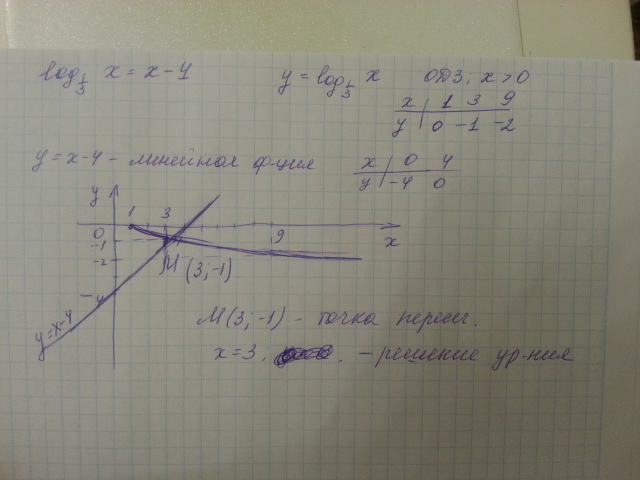 log 1/3 x = x - 4 y = log 1/3 x ОДЗ: x > 0
x | 1 3 9
y | 0 -1 -2
y = x - 4 - линейная ф-ция
x | 0 4
y | -4 0
y
1 3
0 9 x
-1
-2
M (3; -1)
-4
y = x - 4
M (3; -1) - точка перес.
x = 3, - решение ур-ния